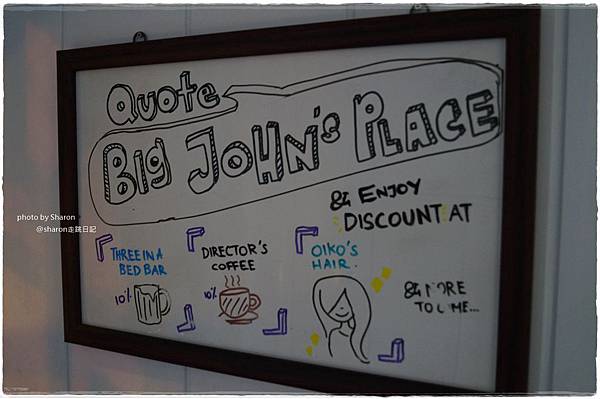 Quote
Big John's Place
& Enjoy
Discount at
Three in a
Bed Bar
10%
Director's
Coffee
10%
Oiko's
Hair.
& More
to come...
photo by Sharon
@sharon走跳日記